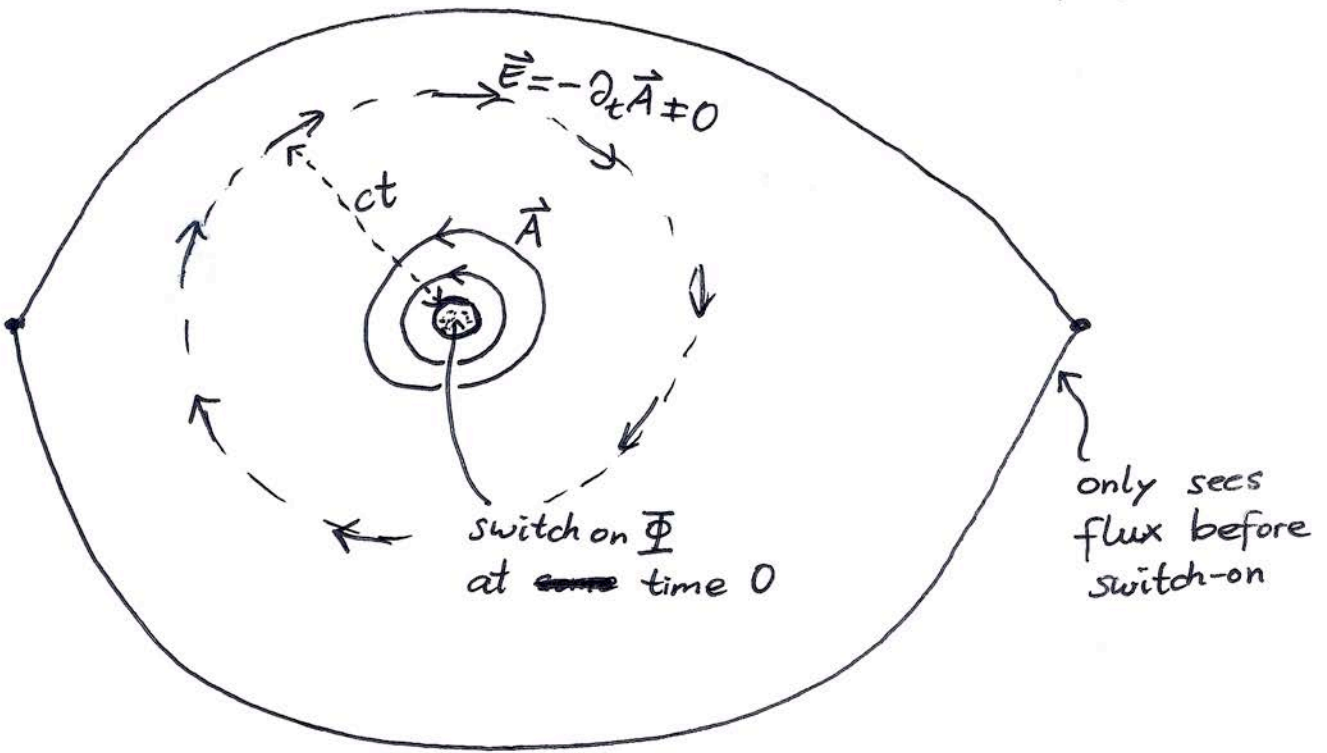 E⃗ = -∂ₜA⃗ ≠ 0
ct
A⃗
switch on Φ
at time 0
only sees
flux before
switch-on